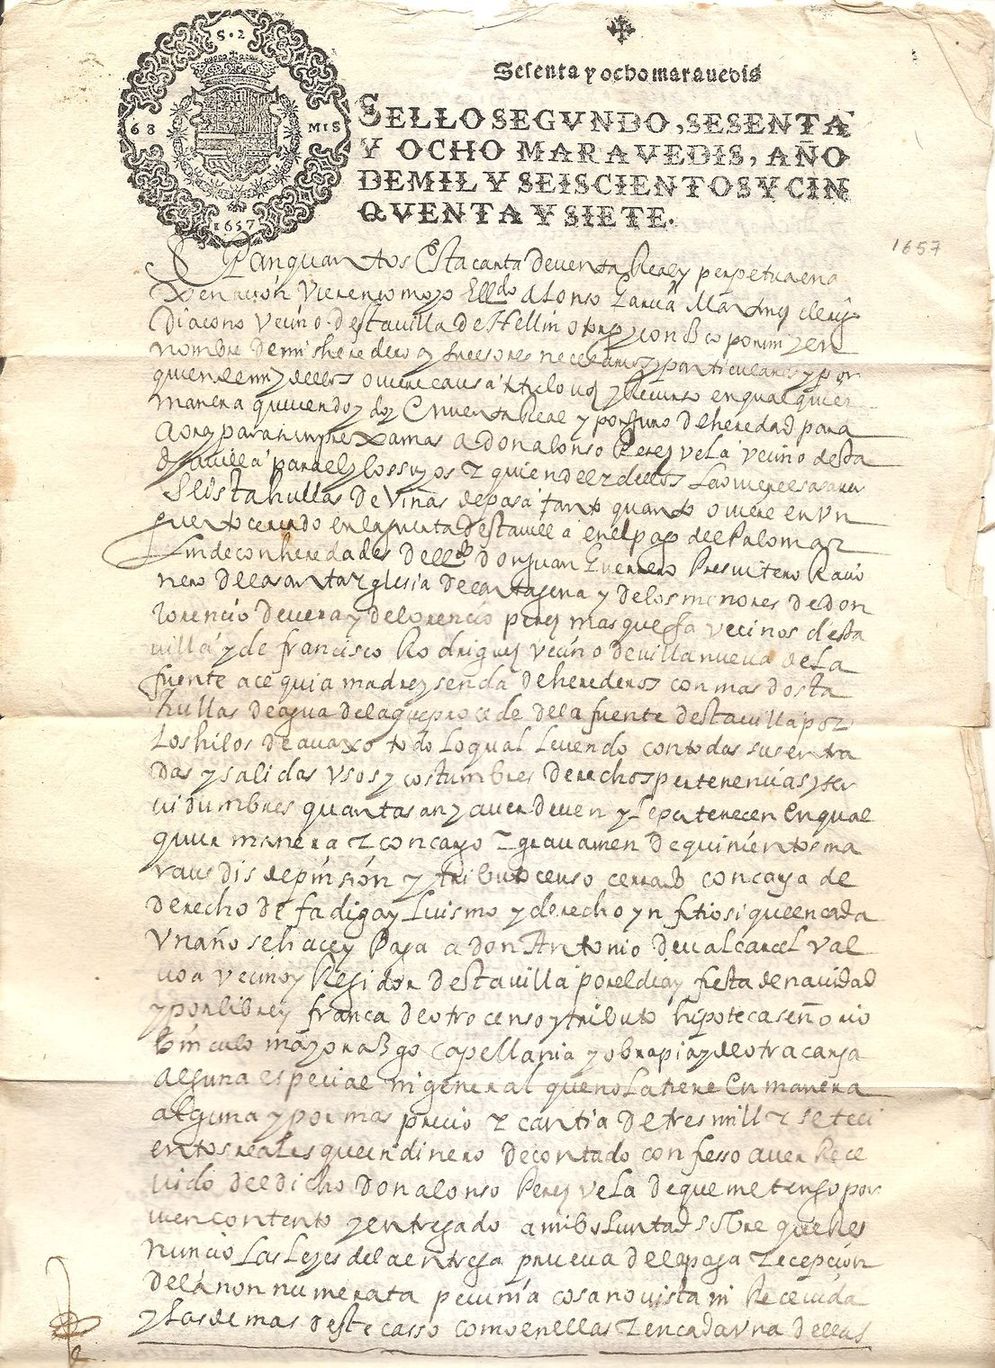 S . 2
68 MIS
1657
Sesenta y ocho maravedis
SELLO SEGVNDO, SESENTA
Y OCHO MARAVEDIS, AÑO
DEMIL Y SEISCIENTOS Y CIN
QVENTA Y SIETE.
1657
Sepan quantos Esta carta de venta Real y perpetua ena
xenacion vieren como yo Ell.do Alonso Garcia Martinez clerigo
Diacono vecino desta villa de Hellin otorgo y conozco por mi y en
nombre de mis herederos y subcesores y por
quien de mi y dellos oviere causa titulo voz y Recurso en qualquier
manera que vendo y doy En venta Real y por juro de heredad para
aora y para siempre xamas a Don alonso Perez vela vecino desta
dha villa para el y los suyos z quien del z dellos
Seis tahullas de viñas de pasa tanto quanto oviere en un
guerto cerrado en la guerta desta villa en el pago del Palomar
linde con heredades del l.do Don Juan Guerrero Presvitero Racio
nero de la santa Yglesia de cartagena y de los menores de don
lorencio de vera y de lorencio perez masquefa vecinos desta
villa y de francisco Rodriguez vecino de villanueva de la
fuente acequia madre y senda de herederos con mas dos ta
hullas de agua de la que procede de la fuente desta villa por
los hilos de avaxo todo lo qual le vendo con todas sus entra
das y salidas usos y costumbres derechos pertenencias y ser
vidumbres quantas an y aver deven y le pertenecen en qual
quier manera z con cargo z gravamen de quinientos ma
ravedis de pinsion y tributo censo cerrado con carga de
derecho de fadiga y Luismo y derecho ynfitiosi que en cada
un año se hace y Paga a don Antonio de valcarcel val
voa vecino y Regidor desta villa por el dia y fiesta de navidad
y por libre y franca de otro censo y tributo hipoteca señorio
bínculo mayorazgo capellania y obra pia y de otra carga
alguna especial ni general que no la tiene en manera
alguna y por mas precio z cantia de tres mill z seteci
entos reales que en dinero de contado confesso aver Rece
vido del dicho Don alonso Perez vela de que me tengo por
vien contento y entregado a mi boluntad sobre que Re
nuncio las Leyes de la entrega prueva de la paga z ecepcion
de la non numerata pecunia cosa no vista ni Recevida
y las demas deste casso como en ellas z en cada una dellas